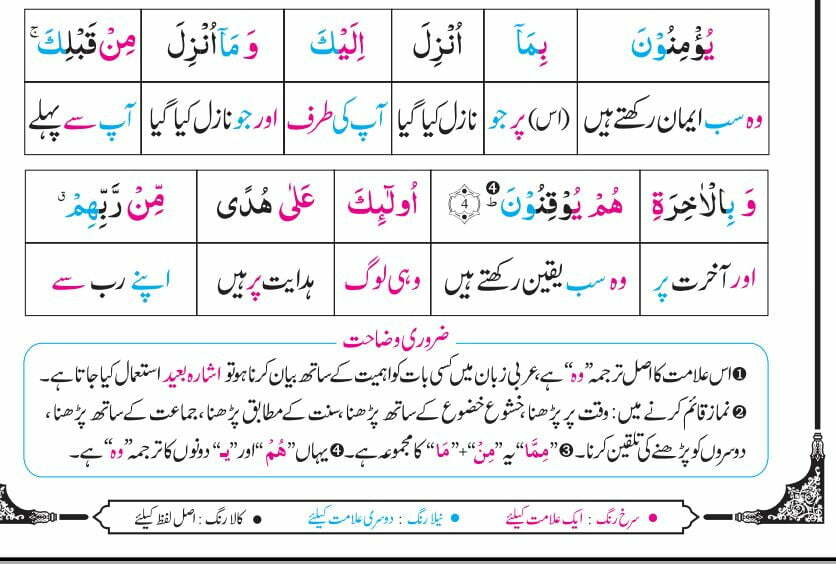 يُؤْمِنُوْنَ بِمَآ اُنْزِلَ اِلَيْكَ وَ مَآ اُنْزِلَ مِنْ قَبْلِكَ ۚ
وہ سب ایمان رکھتے ہیں (اس) پر جو نازل کیا گیا آپ کی طرف اور جو نازل کیا گیا آپ سے پہلے
وَ بِالْاٰخِرَةِ هُمْ يُوْقِنُوْنَ ❹ ط 4 اُولٰٓئِكَ عَلٰى هُدًى مِّنْ رَّبِّهِمْ ۗ
اور آخرت پر وہ سب یقین رکھتے ہیں وہی لوگ ہدایت پر ہیں اپنے رب سے
ضروری وضاحت
❶ اس علامت کا اصل ترجمہ ”وہ“ ہے، عربی زبان میں کسی بات کو اہمیت کے ساتھ بیان کرنا ہو تو اشارہ بعید استعمال کیا جاتا ہے۔
❷ نماز قائم کرنے میں: وقت پر پڑھنا، خشوع خضوع کے ساتھ پڑھنا، سنت کے مطابق پڑھنا، جماعت کے ساتھ پڑھنا،
دوسروں کو پڑھنے کی تلقین کرنا۔ ❸ ”مِمَّا“ یہ ”مِنْ“+”مَا“ کا مجموعہ ہے۔ ❹ یہاں ”هُمْ“ اور ”يـ“ دونوں کا ترجمہ ”وہ“ ہے۔
● سرخ رنگ : ایک علامت کیلئے ● نیلا رنگ : دوسری علامت کیلئے ● کالا رنگ : اصل لفظ کیلئے